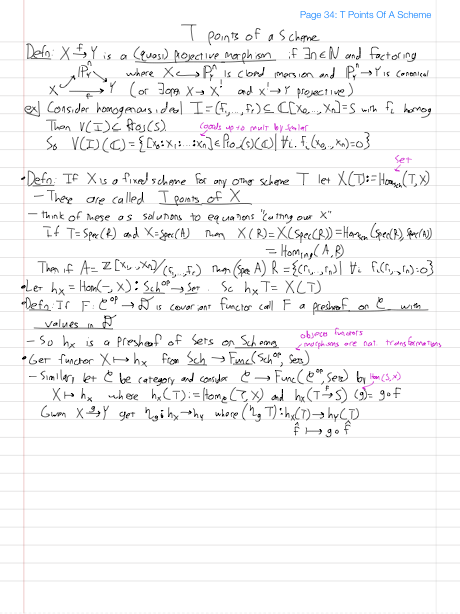 Page 34: T Points Of A Scheme
T points of a Scheme
Defn: X →f Y is a (quasi) projective morphism if ∃n∈ℕ and factoring
ℙ_Y^n where X ↪ ℙ_Y^n is closed imersion and ℙ_Y^n → Y is canonical
X →f Y (or ∃ open X → X' and X' → Y projective)
ex) Consider homogenous ideal I = (f₁,...,fᵣ) ⊆ ℂ[X₀,...,Xₙ] = S with fᵢ homog
Then V(I) ⊆ Proj(S)
coords up to mult by scalar
So V(I)(ℂ) = {[x₀:x₁:...:xₙ] ∈ Proj(S)(ℂ) | ∀i. fᵢ(x₀,...,xₙ)=0}
Set
• Defn: If X is a fixed scheme for any other scheme T let X(T) := Hom_Sch(T, X)
- These are called T points of X
- think of these as solutions to equations "cutting out X"
If T = Spec(R) and X = Spec(A) then X(R) = X(Spec(R)) = Hom_Sch(Spec(R), Spec(A))
= Hom_ring(A, R)
Then if A = ℤ[x₁,...,xₙ]/(f₁,...,fᵣ) then (Spec A) R = {(r₁,...,rₙ) | ∀i fᵢ(r₁,...,rₙ)=0}
• Let h_X = Hom(-, X) : Sch^op → Set. So h_X T = X(T)
• Defn: If F: C^op → D is covariant functor call F a presheaf on C with
values in D
- So h_X is a Presheaf of Sets on Schemes
objects functors
morphisms are nat transformations
• Get functor X ↦ h_X from Sch → Func(Sch^op, Sets)
- Similarly let C be category and consider C → Func(C^op, Sets) by
Hom(S,X)
X ↦ h_X where h_X(T) := Hom_C(T, X) and h_X(T →f S) (g) = g∘f
Given X →g Y get η_g : h_X → h_Y where (η_g T) : h_X(T) → h_Y(T)
f̂ ↦ g∘f̂